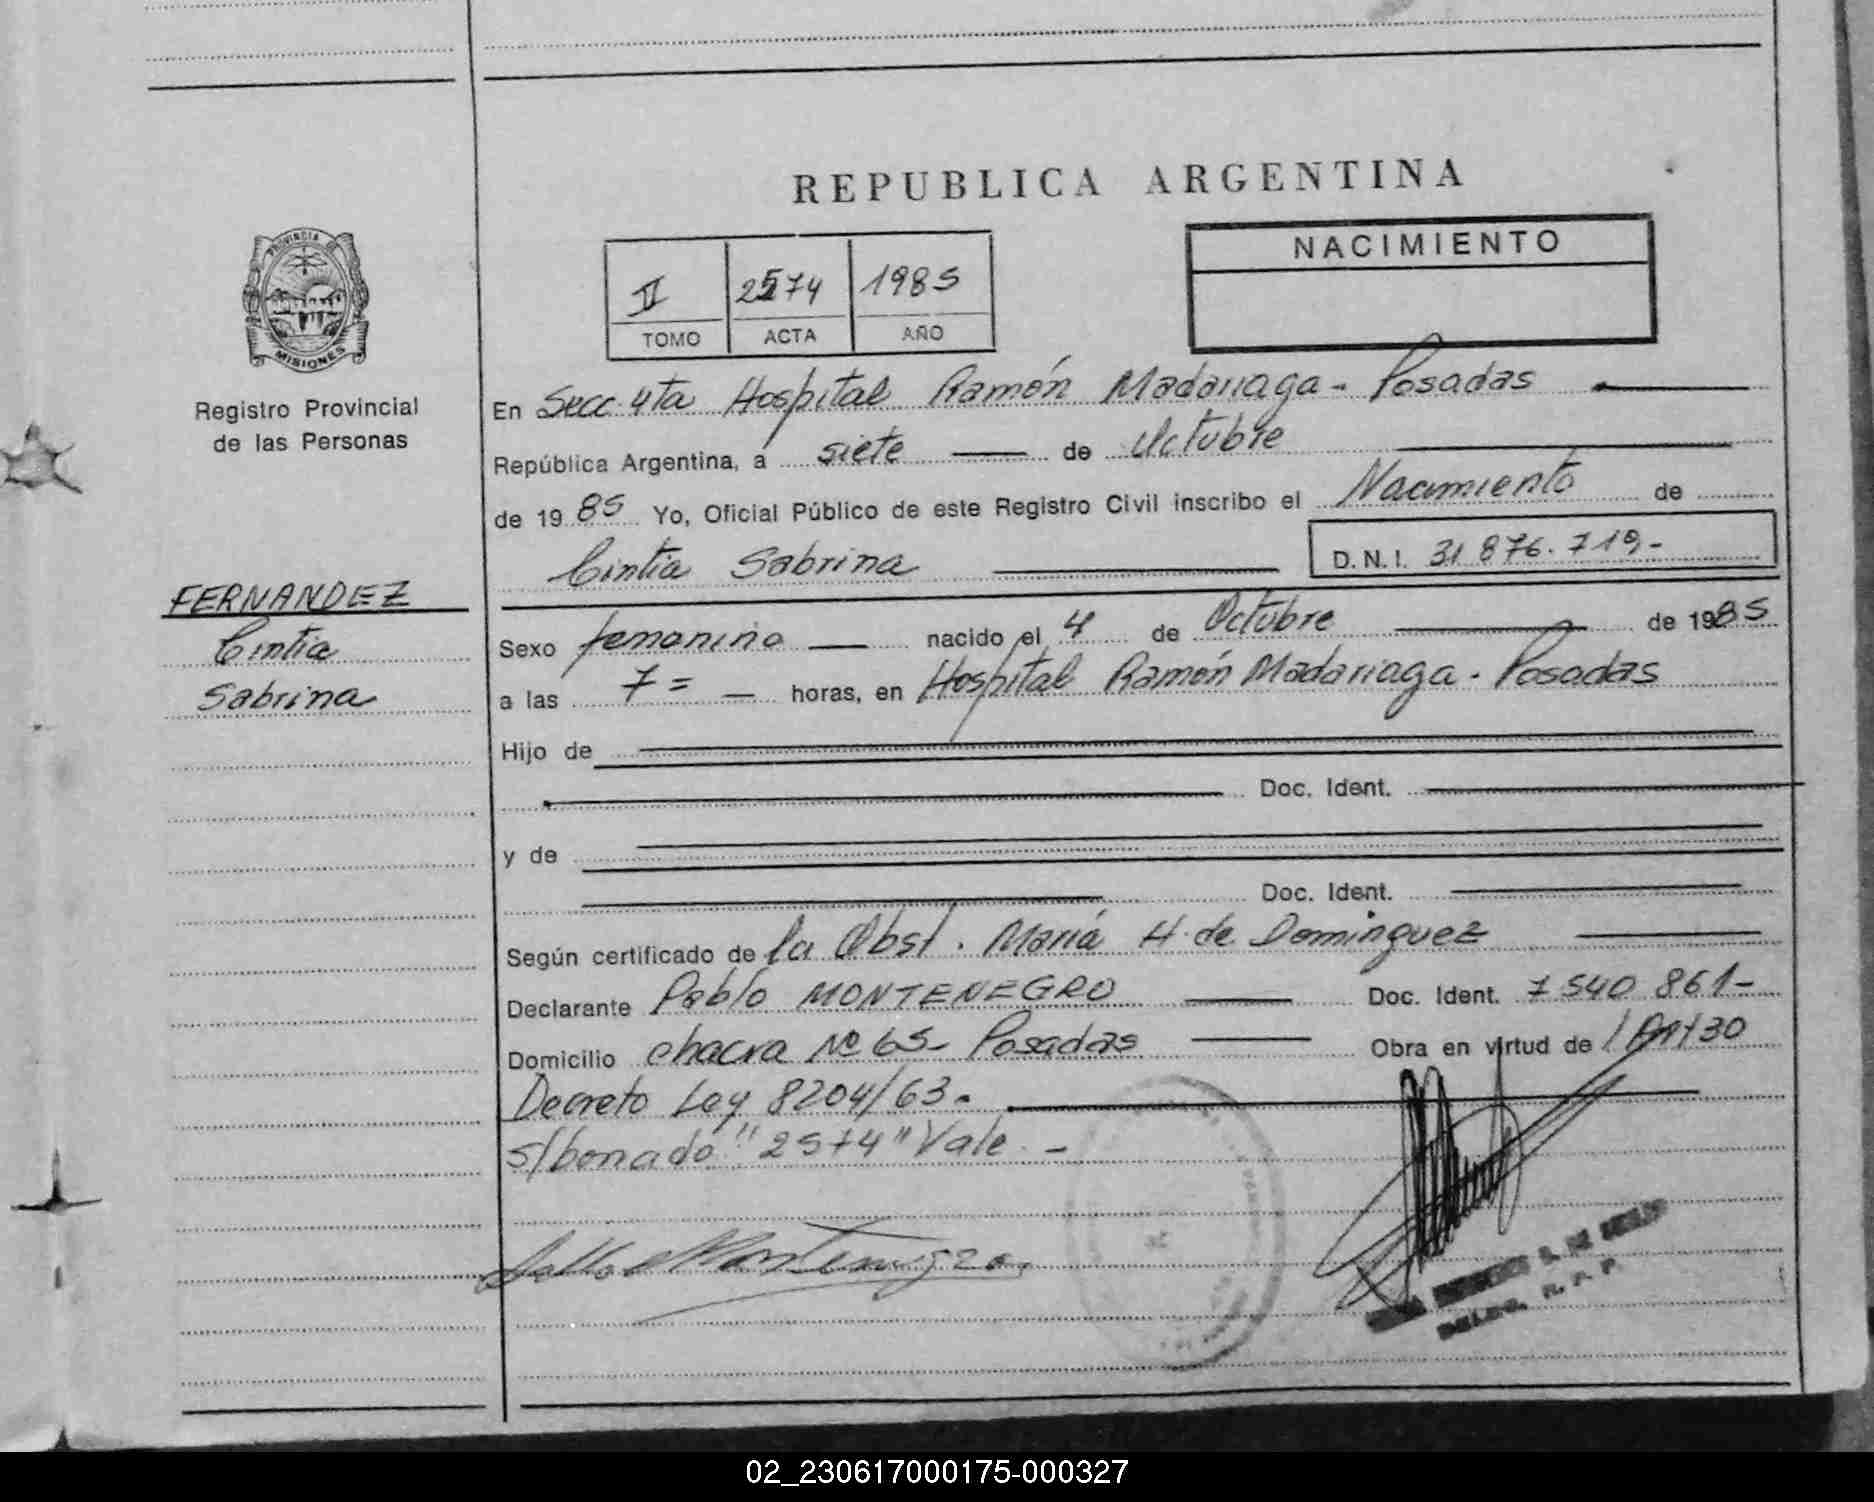 REPUBLICA ARGENTINA
PROVINCIA DE
MISIONES
Registro Provincial
de las Personas
II 2574 1985
TOMO ACTA AÑO
NACIMIENTO
En Secc. 4ta Hospital Ramón Madariaga - Posadas
República Argentina, a siete de Octubre
de 1985 Yo, Oficial Público de este Registro Civil inscribo el Nacimiento de
Cintia Sabrina D.N.I. 31.876.719.-
FERNANDEZ
Cintia
Sabrina
Sexo femenino nacido el 4 de Octubre de 1985
a las 7 = horas, en Hospital Ramón Madariaga - Posadas
Hijo de
Doc. Ident.
y de
Doc. Ident.
Según certificado de la Obst. María H. de Dominguez
Declarante Pablo MONTENEGRO Doc. Ident. 7 540 861-
Domicilio chacra Nº 65- Posadas Obra en virtud de / Art 30
Decreto Ley 8204/63.
s/borrado "2574" Vale. -
Pablo Montenegro
02_230617000175-000327